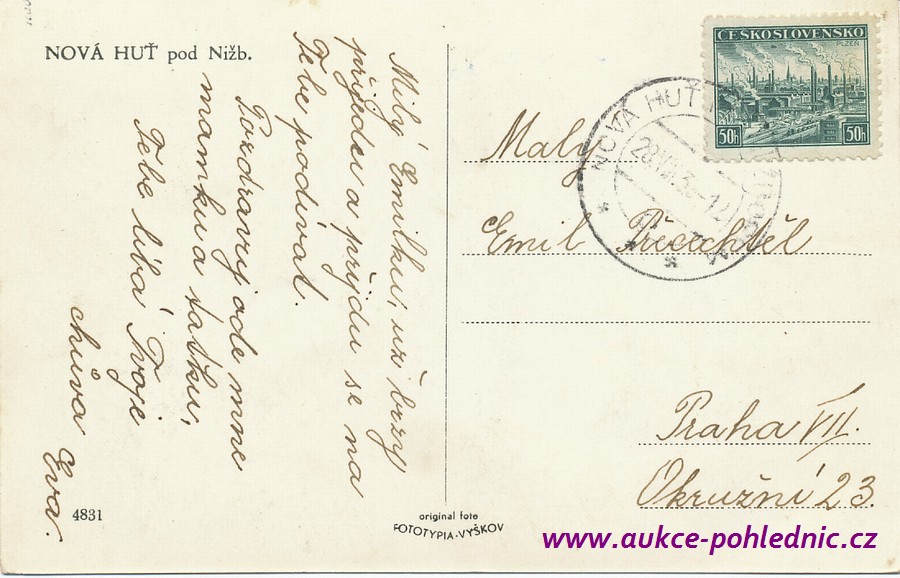 NOVÁ HUŤ pod Nižb.
Milý Emilku, už brzy
přijedu a přijdu se na
Tebe podívat.
Pozdravuj ode mne
mamku a taťku,
Tebe líbá Tvoje
chůva Eva.
4831
original foto
FOTOTYPIA-VYŠKOV
ČESKOSLOVENSKO
PLZEŇ
50h 50h
NOVÁ HUŤ
Malý
Emil Přecechtěl
Praha VII.
Okružní 23.
www.aukce-pohlednic.cz